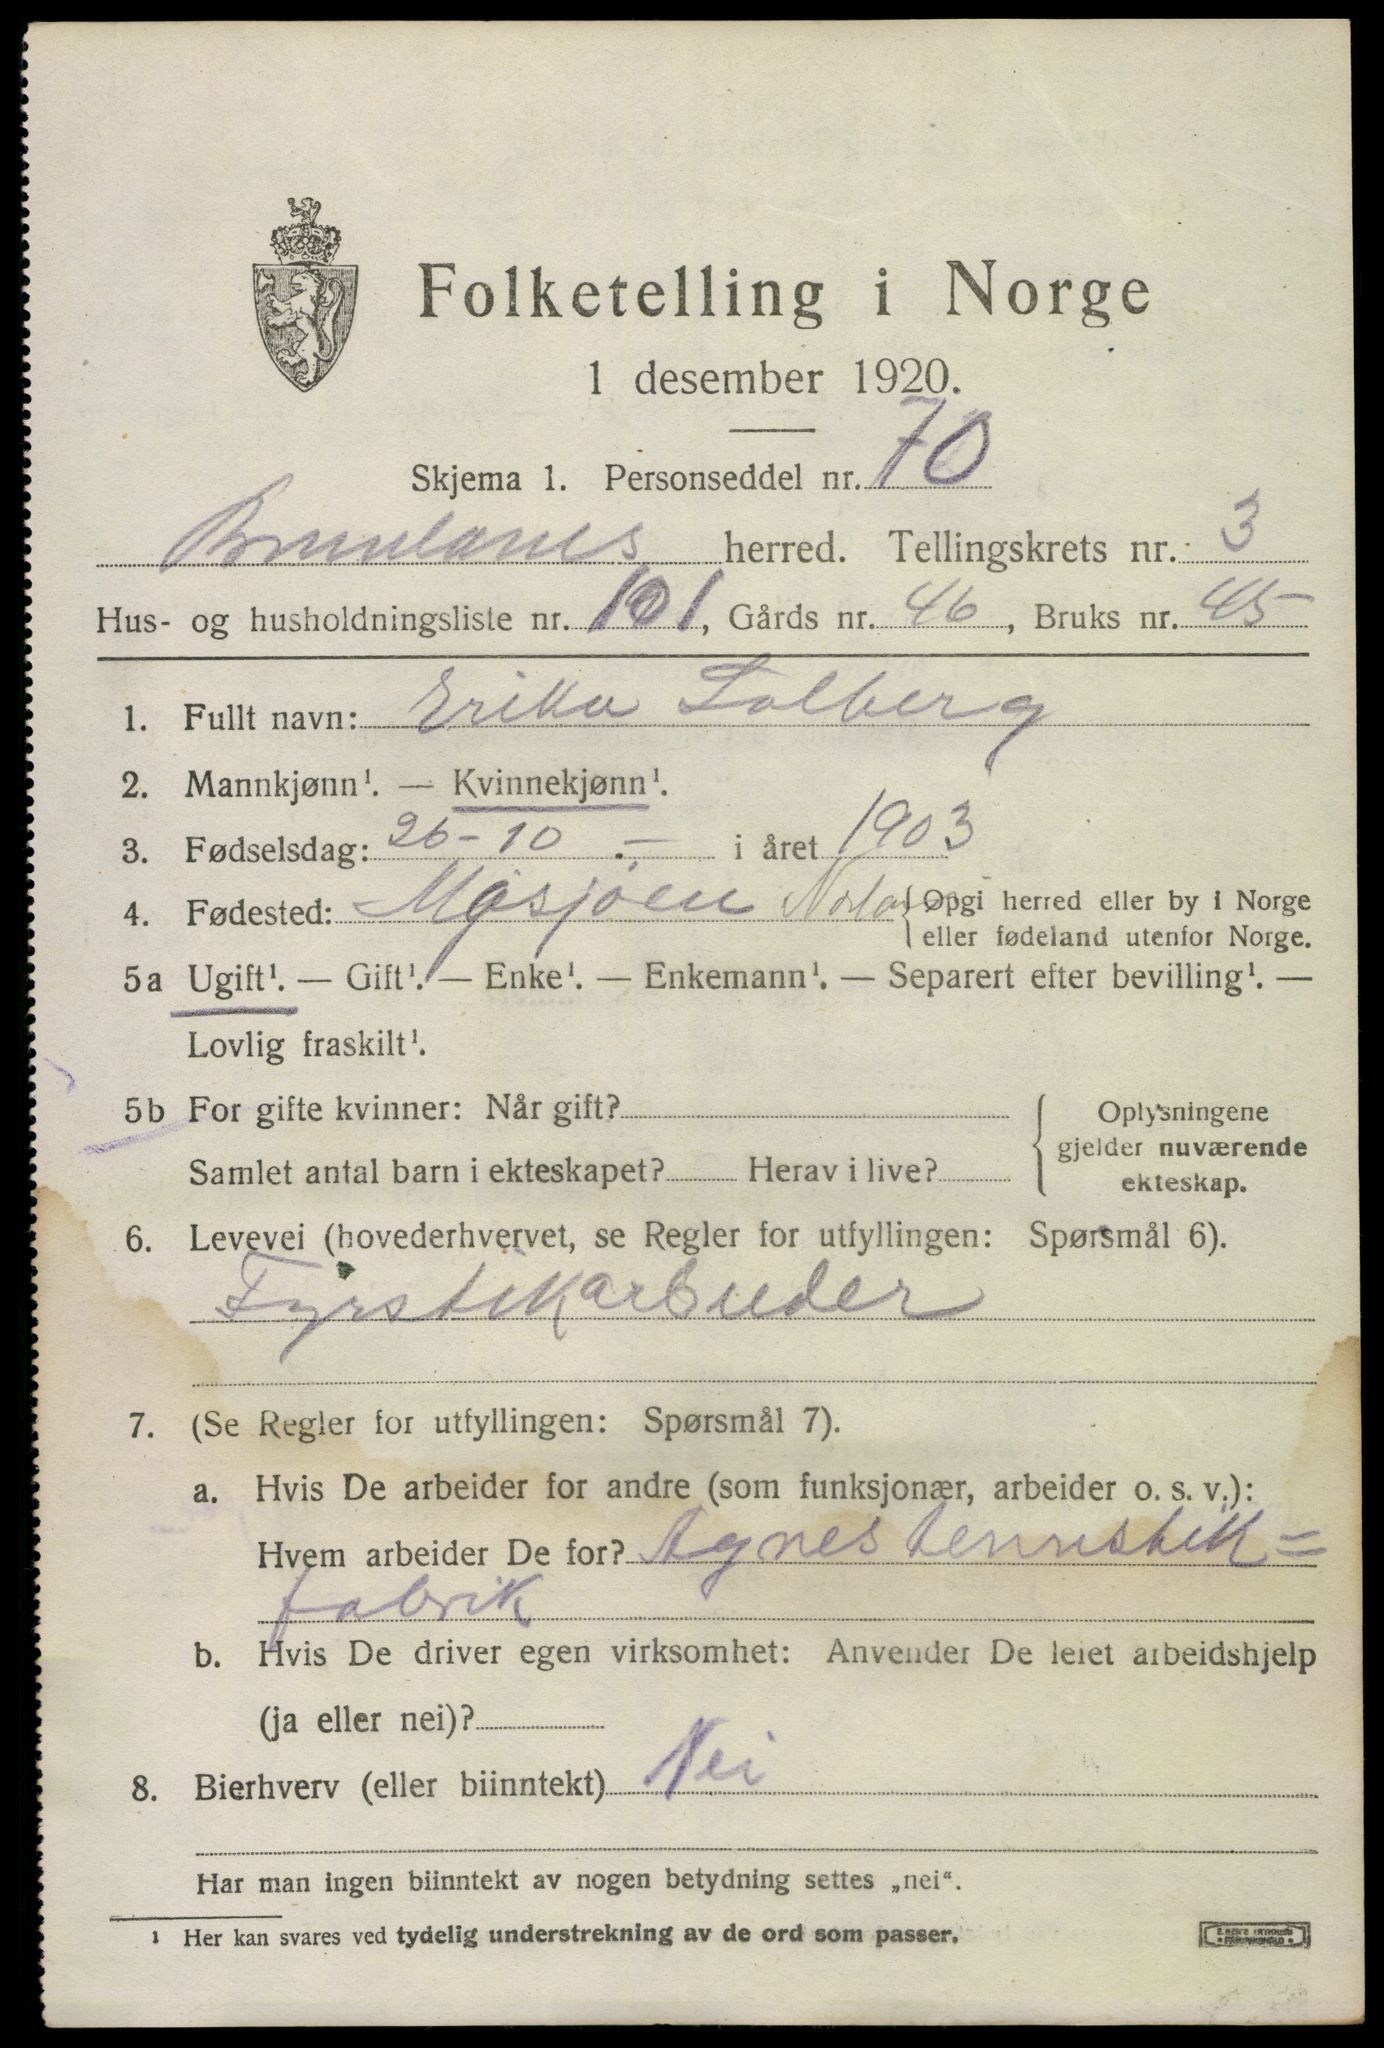 Folketelling i Norge
1 desember 1920.
Skjema 1. Personseddel nr. 70
Brunlanes herred. Tellingskrets nr. 3
Hus- og husholdningsliste nr. 101, Gårds nr. 46, Bruks nr. 45
1. Fullt navn: Erika Solberg
2. Mannkjønn¹. — Kvinnekjønn¹.
3. Fødselsdag: 26-10 .- i året 1903
4. Fødested: Mosjøen {Opgi herred eller by i Norge
eller fødeland utenfor Norge.
5a Ugift¹. — Gift¹. — Enke¹. — Enkemann¹. — Separert efter bevilling¹. —
Lovlig fraskilt¹.
5b For gifte kvinner: Når gift? { Oplysningene
gjelder nuværende
Samlet antal barn i ekteskapet? Herav i live? ekteskap.
6. Levevei (hovederhvervet, se Regler for utfyllingen: Spørsmål 6).
Fyrstikarbeider
7. (Se Regler for utfyllingen: Spørsmål 7).
a. Hvis De arbeider for andre (som funksjonær, arbeider o. s. v.):
Hvem arbeider De for? Agnes tennstik=
fabrik
b. Hvis De driver egen virksomhet: Anvender De leiet arbeidshjelp
(ja eller nei)?
8. Bierhverv (eller biinntekt) Nei
Har man ingen biinntekt av nogen betydning settes „nei“.
¹ Her kan svares ved tydelig understrekning av de ord som passer.